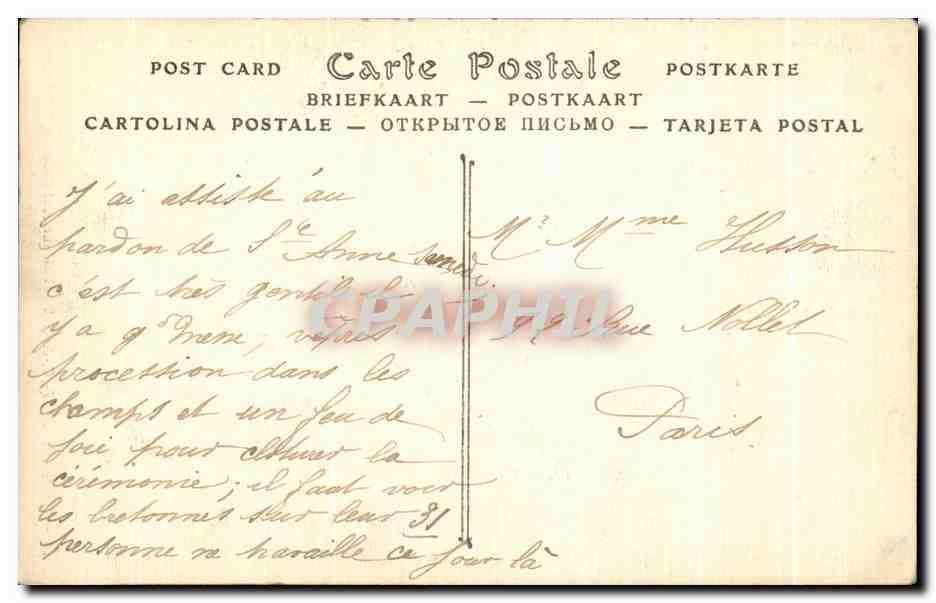 POST CARD Carte Postale POSTKARTE
BRIEFKAART — POSTKAART
CARTOLINA POSTALE — ОТКРЫТОЕ ПИСЬМО — TARJETA POSTAL
J'ai assisté au
pardon de Ste Anne samedi.
c'est très gentil il
y a gde messe, vêpres
procession dans les
champs et un feu de
joie pour cloturer la
cérémonie ; il faut voir
les bretonnes sur leur 31
personne ne travaille ce jour là
Mr Mme Husson
Rue Nollet
Paris.
CPAPHIL